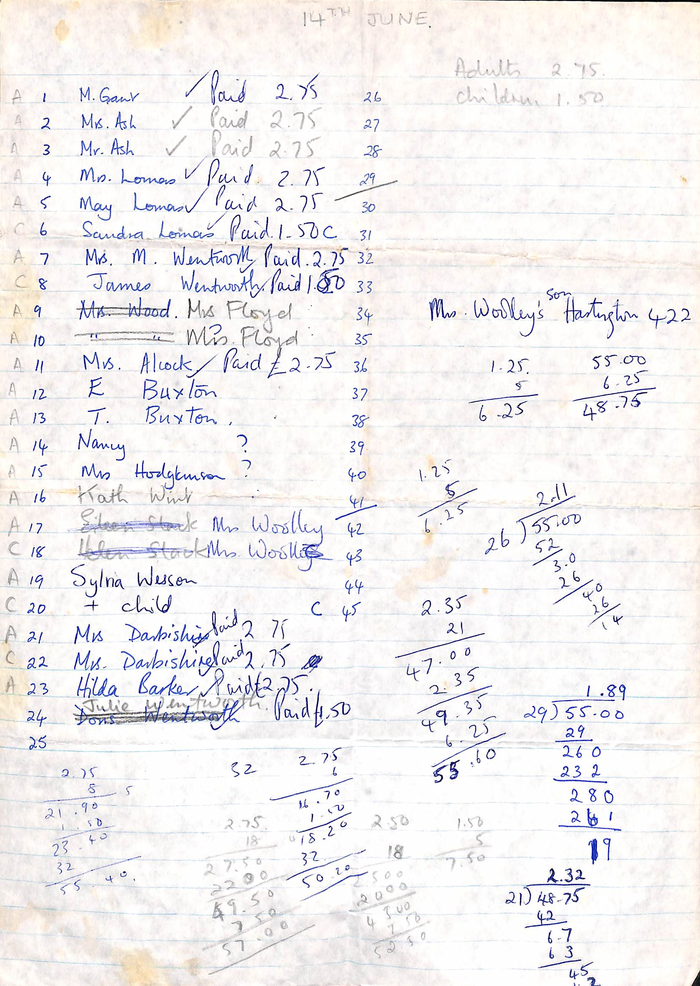 14TH JUNE.
Adults 2.75.
children 1.50
A 1 M. Gaur ✓ Paid 2.75 26
A 2 Mrs. Ash ✓ Paid 2.75 27
A 3 Mr. Ash ✓ Paid 2.75 28
A 4 Mrs. Lomas ✓ Paid. 2.75 29
A 5 May Lomas ✓ Paid 2.75 30
C 6 Sandra Lomas ✓ Paid. 1.50 C 31
A 7 Mrs. M. Wentworth Paid. 2.75 32
C 8 James Wentworth. Paid 1.50 33
A 9 Mrs. Wood. Mrs Floyd 34
A 10 " " ? Mrs. Floyd 35
A 11 Mrs. Alcock ✓ Paid £2.75 36
A 12 E Buxton 37
A 13 T. Buxton. 38
A 14 Nancy ? 39
A 15 Mrs Hodgkinson ? 40
A 16 Kath Wint 41
A 17 Eileen Slack Mrs Woolley 42
C 18 Helen Slack Mrs Woolley C 43
A 19 Sylvia Wesson 44
C 20 + child C 45
A 21 Mrs Darbishire Paid 2 75
C 22 Mrs. Darbishire Paid 2.75
A 23 Hilda Barker ✓ Paid £2.75.
Julie Wentworth.
24 Doris Wentworth Paid £1.50
25
son
Mrs. Woolley's Hartington 422
1.25.
5
6.25
55.00
6.25
48.75
1.25
5
6.25
2.11
26)55.00
52
3.0
26
40
26
14
2.35
21
47.00
2.35
49.35
6.25
55.60
1.89
29)55.00
29
260
232
280
261
19
2.32
21)48.75
42
6.7
63
45
2.75
8 5
21.90
1.50
23.40
32
55.40.
32
2.75
6
16.70
1.50
18.20
32
50.20
2.75.
18
27.50
22 00
49.50
7.50
57.00
2.50
18
2500
2000
4500
7.50
5250
1.50
5
7.50